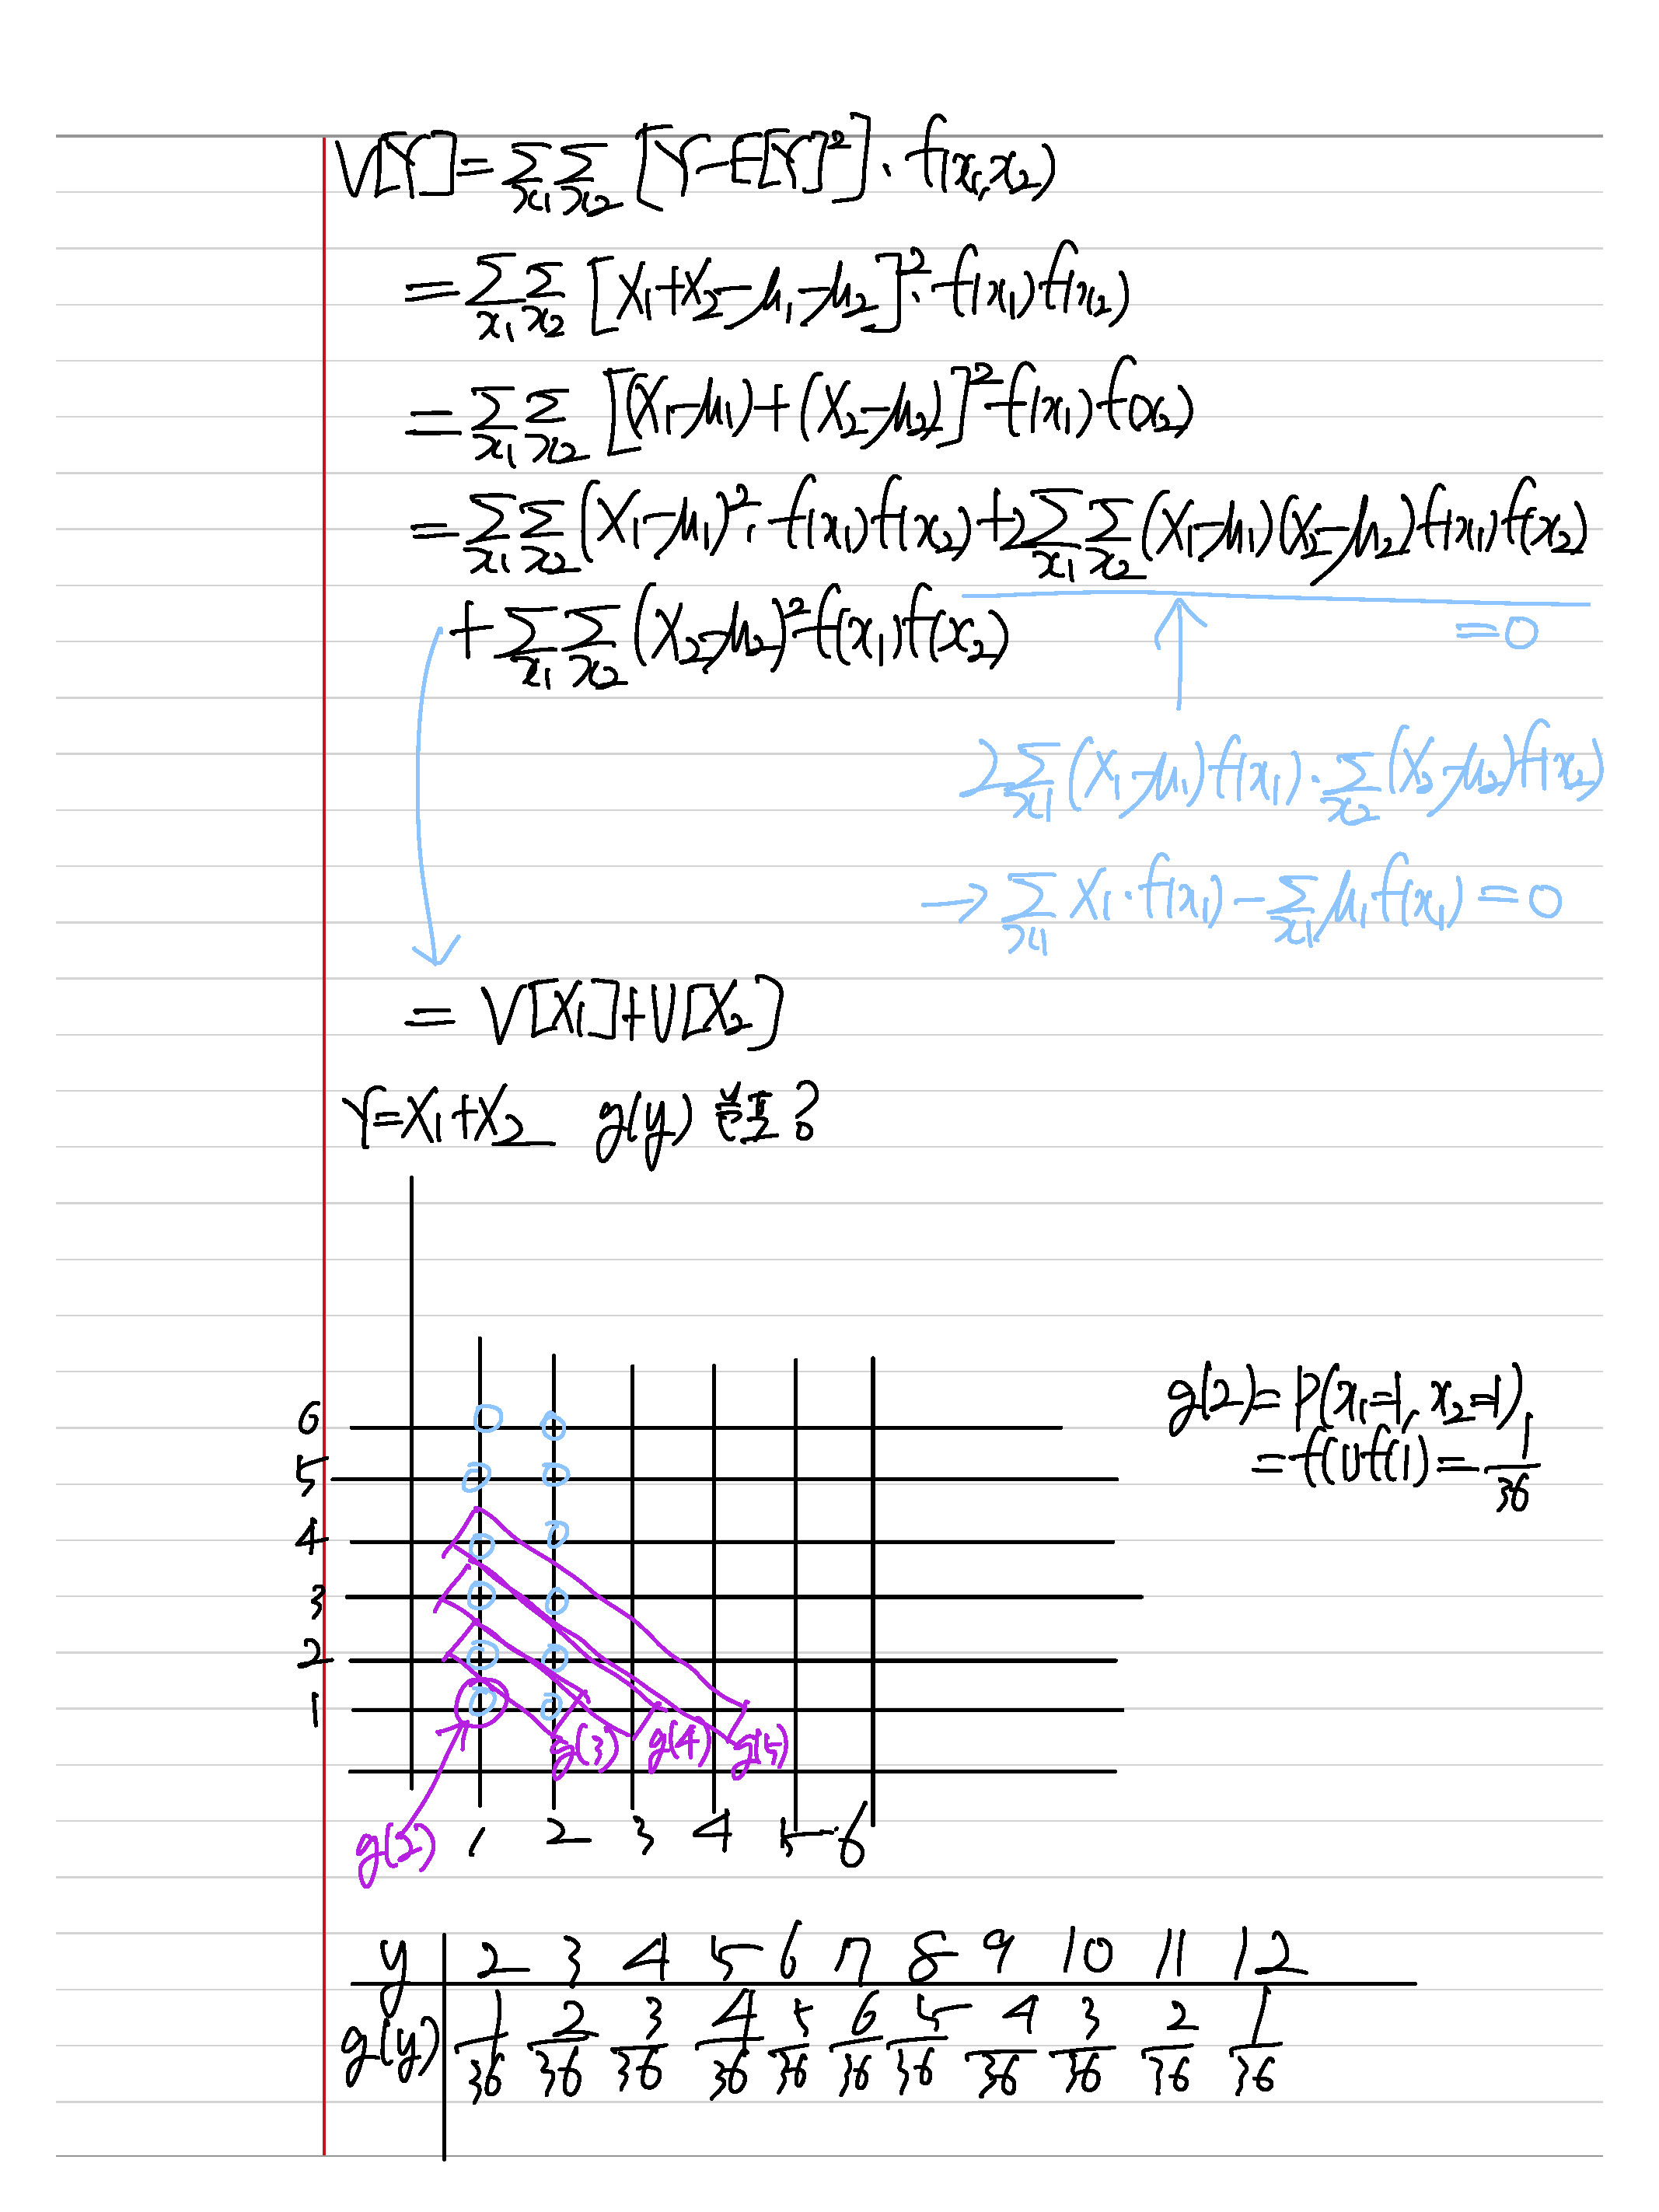 V[Y]=∑x₁∑x₂ [Y-E[Y]²]·f(x₁,x₂)
=∑x₁∑x₂ [X₁+X₂-μ₁-μ₂]²·f(x₁)f(x₂)
=∑x₁∑x₂ [(X₁-μ₁)+(X₂-μ₂)]²f(x₁)f(x₂)
=∑x₁∑x₂(X₁-μ₁)²·f(x₁)f(x₂)+2∑x₁∑x₂(X₁-μ₁)(X₂-μ₂)f(x₁)f(x₂)
+∑x₁∑x₂(X₂-μ₂)²f(x₁)f(x₂)
=0
2∑x₁(X₁-μ₁)f(x₁)·∑x₂(X₂-μ₂)f(x₂)
→∑x₁ X₁·f(x₁)-∑x₁ μ₁f(x₁)=0
= V[X₁]+V[X₂]
Y=X₁+X₂ g(y) 분포?
g(2)=P(x₁=1, x₂=1)
=f(1)f(1)=1/36
6
5
4
3
2
1
g(3) g(4) g(5)
g(2) 1 2 3 4 5 6
y 2 3 4 5 6 7 8 9 10 11 12
g(y) 1/36 2/36 3/36 4/36 5/36 6/36 5/36 4/36 3/36 2/36 1/36